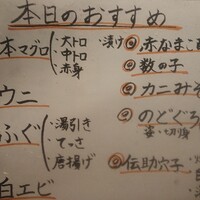 本日のおすすめ
本マグロ
・大トロ
・中トロ
・赤身
・漬け
ウニ
ふぐ
・湯引き
・てっさ
・唐揚げ
白エビ
赤なまこ
数の子
カニみそ
のどぐろ
姿・切身
伝助穴子